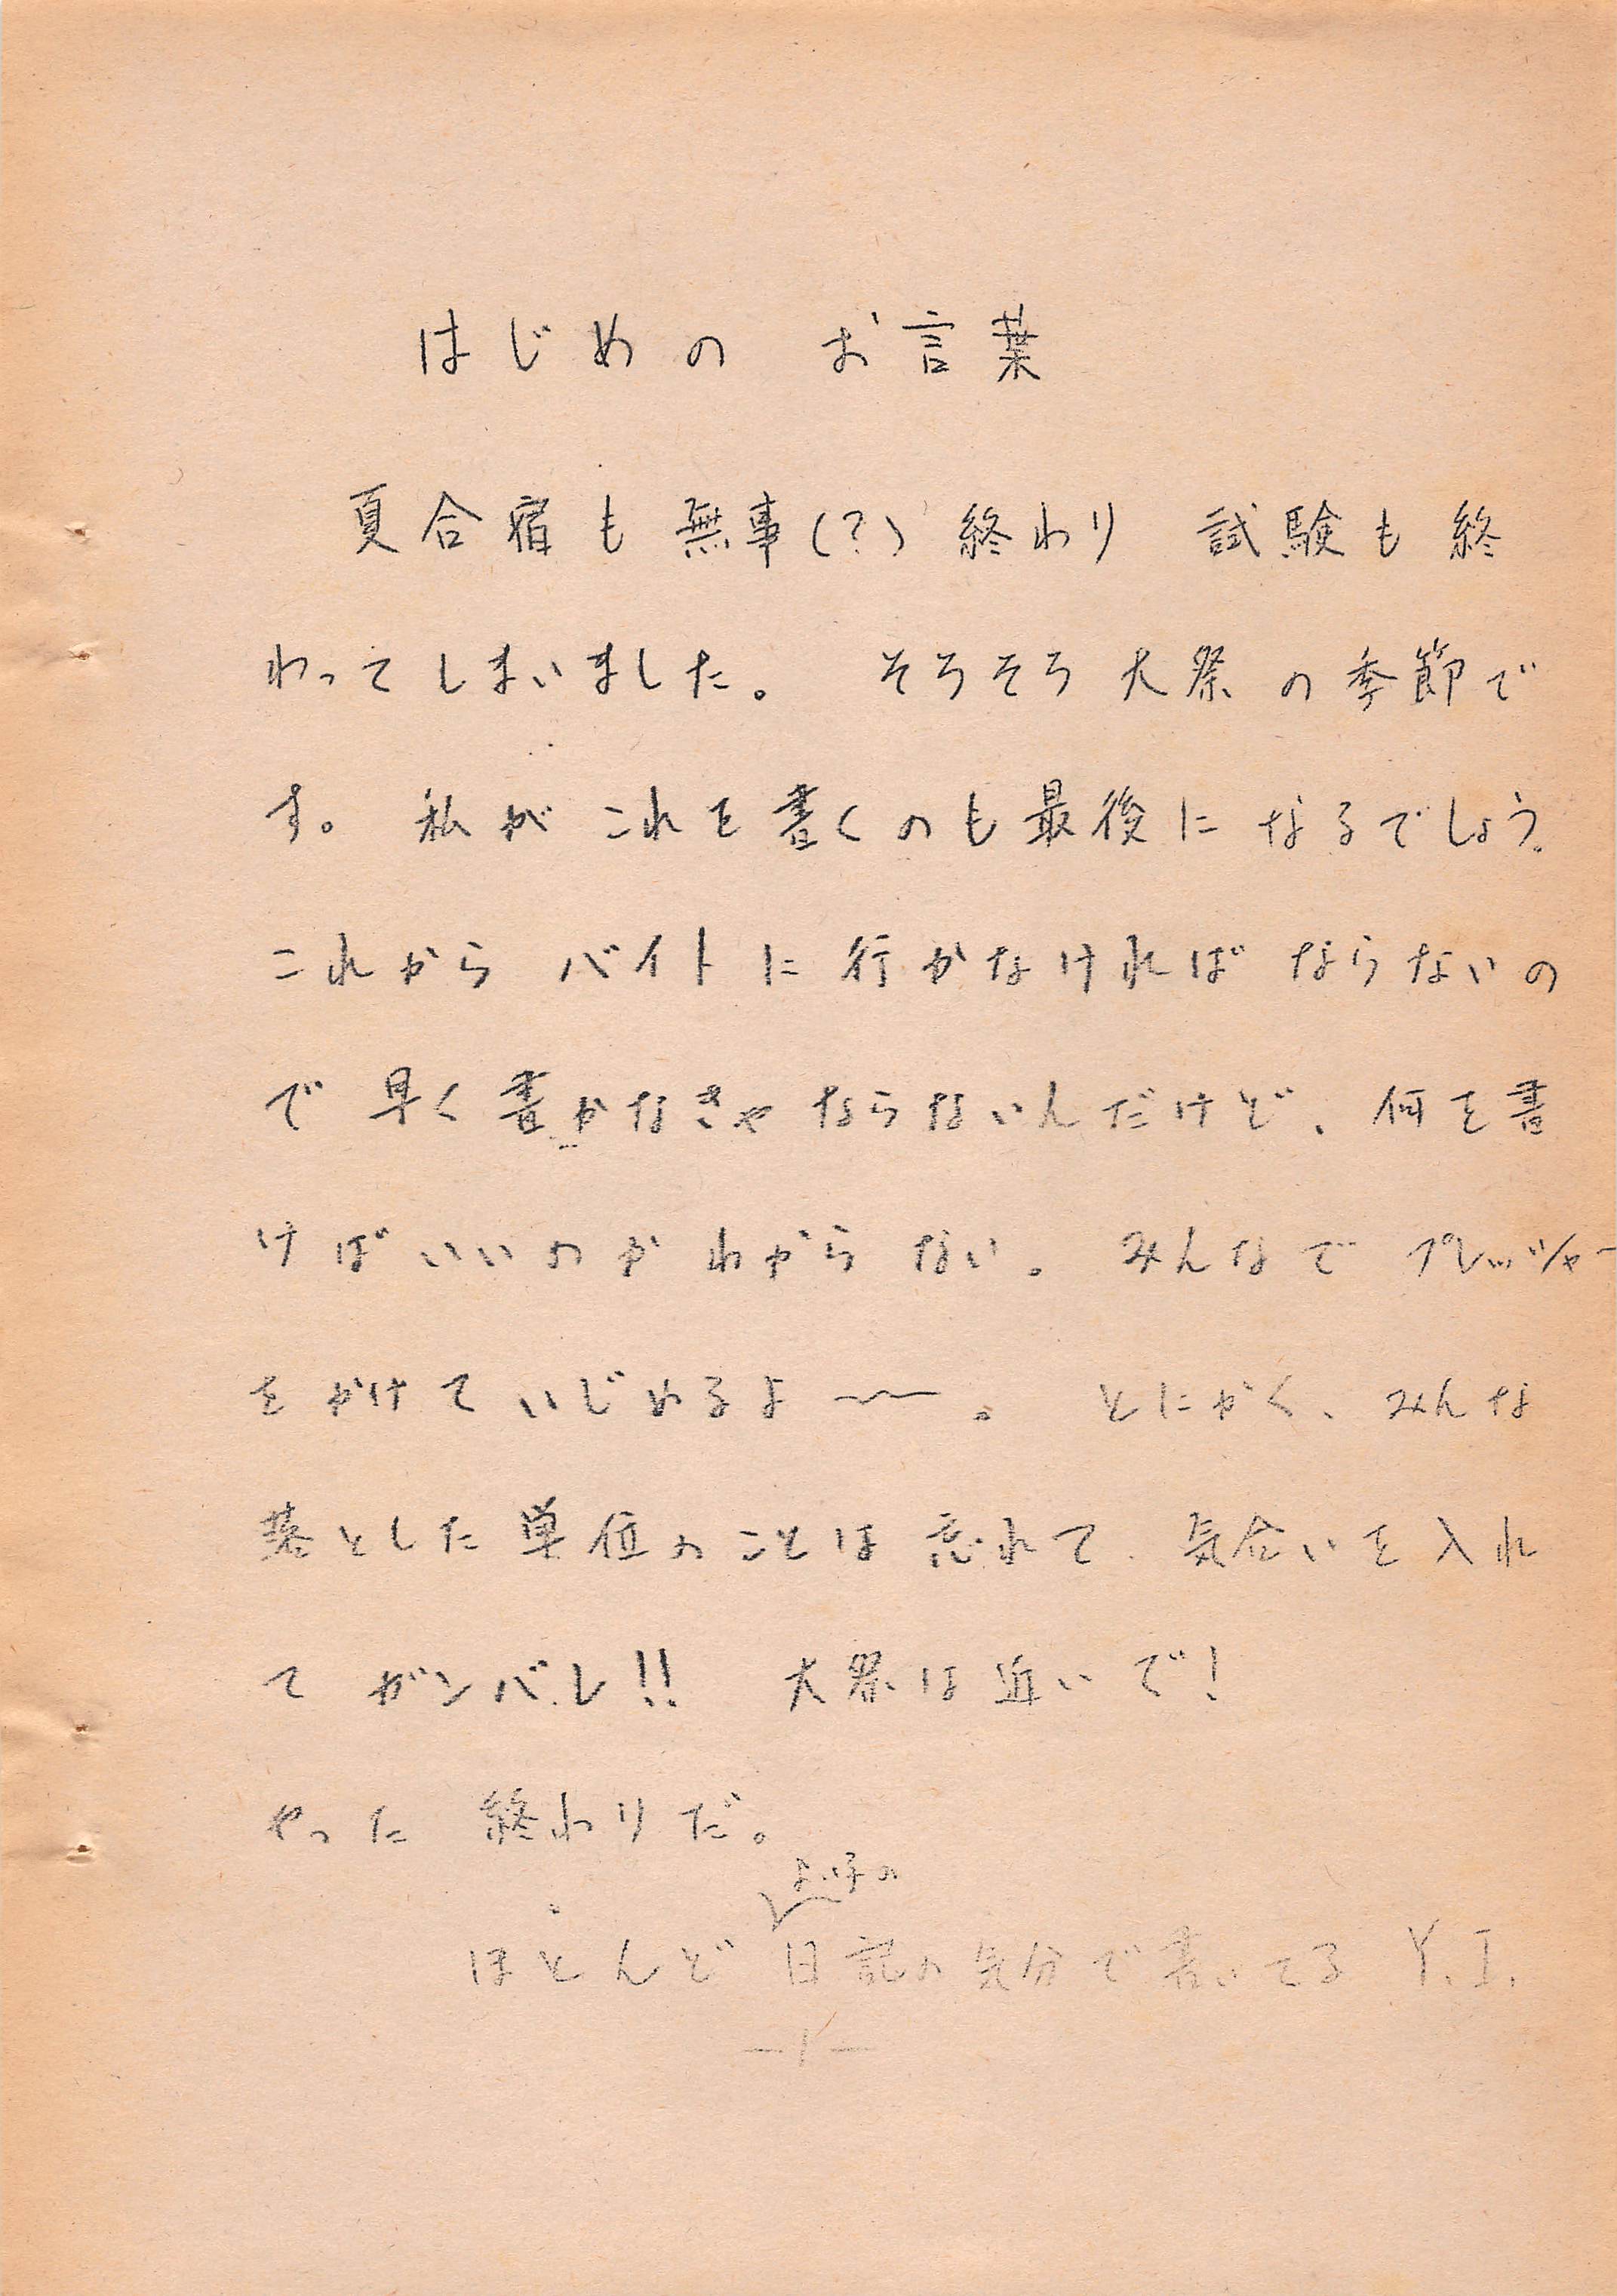 はじめの お言葉
夏合宿も無事(?)終わり 試験も終
わってしまいました。 そろそろ大祭の季節で
す。 私がこれを書くのも最後になるでしょう。
これからバイトに行かなければならないの
で早く書かなきゃならないんだけど、何を書
けばいいのかわからない。 みんなでプレッシャー
をかけていじめるよ〜〜。 とにかく、みんな
落とした単位のことは忘れて、気合いを入れ
てガンバレ!! 大祭は近いで!
やった 終わりだ。
よい子の
ほとんど日記の気分で書いてる Y.I.
—1—